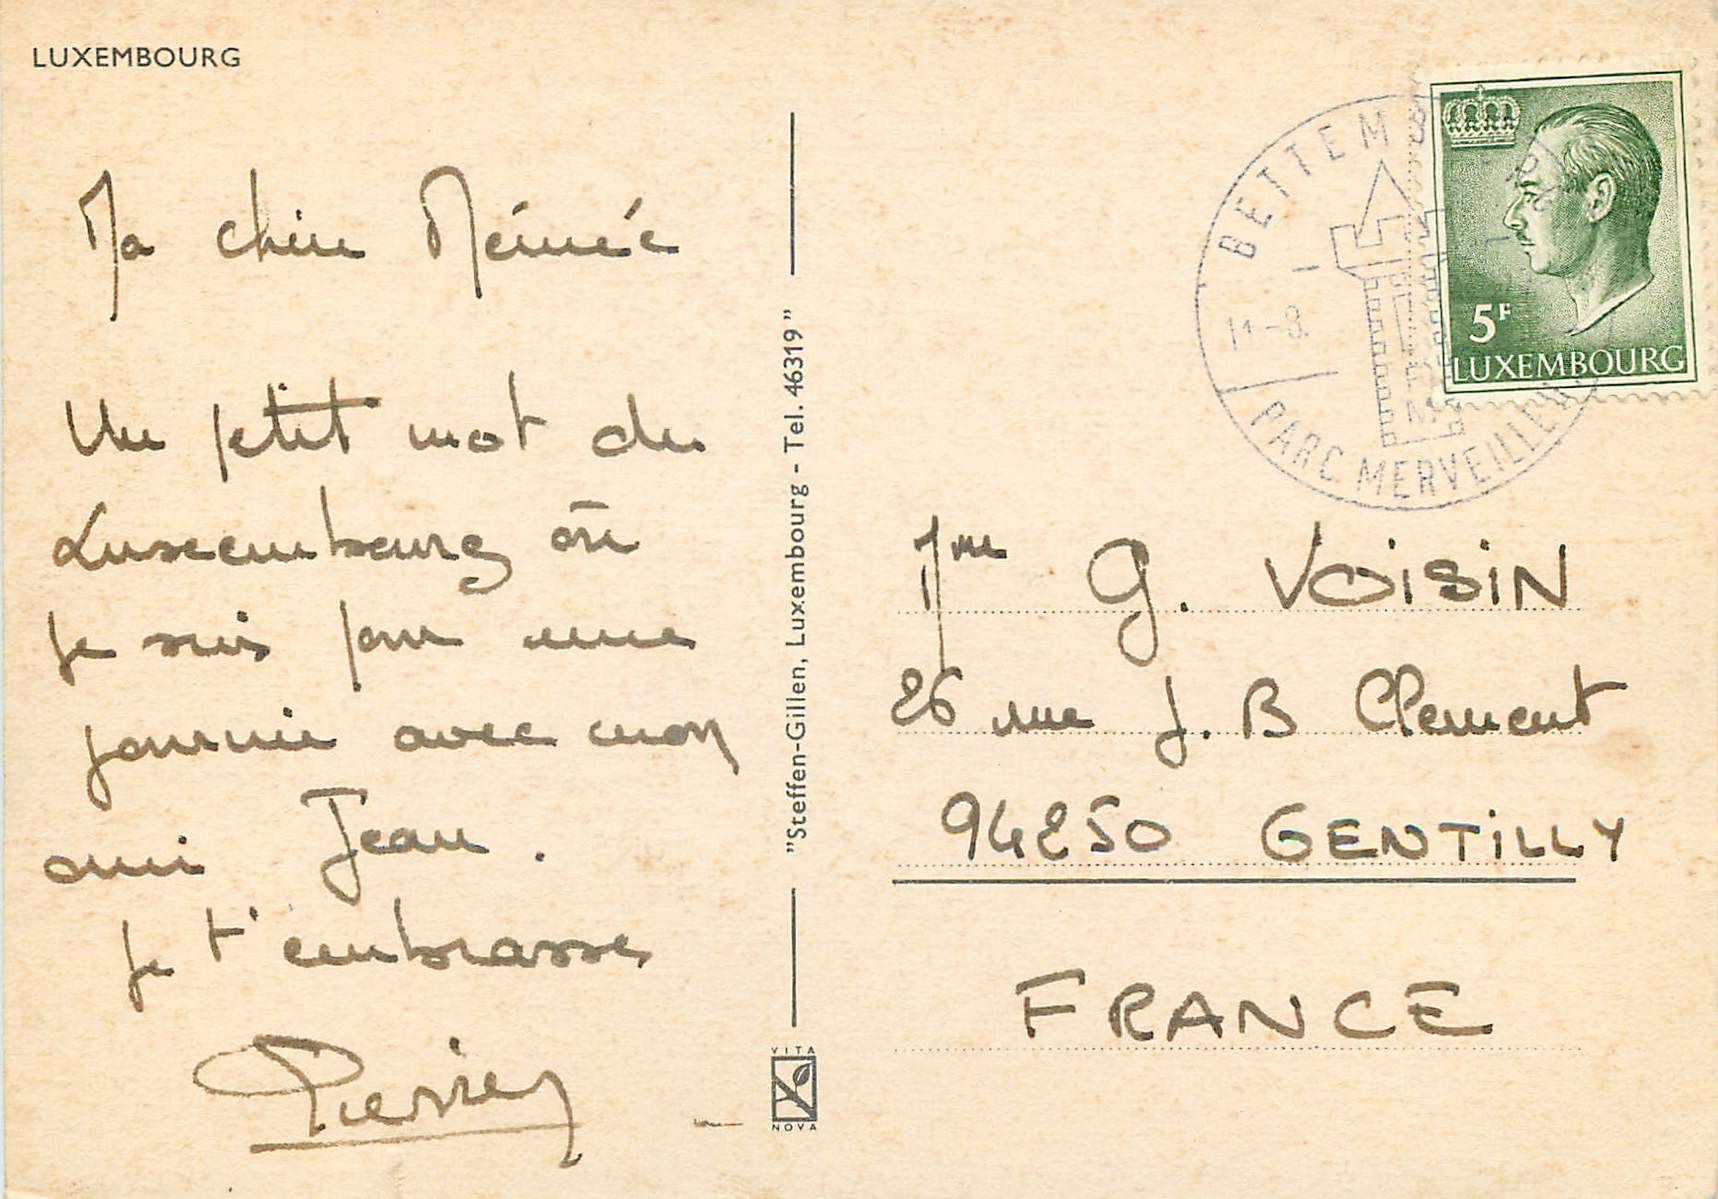 LUXEMBOURG
Ma chère Mémée
Un petit mot du
Luxembourg où
je suis pour une
journée avec mon
ami Jean.
Je t'embrasse
Pierre
"Steffen-Gillen, Luxembourg - Tel. 46319"
VITA
NOVA
BETTEMB
11-8
PARC MERVEILLEU
5F
LUXEMBOURG
Mme G. VOISIN
26 rue J. B Clement
94250 GENTILLY
FRANCE